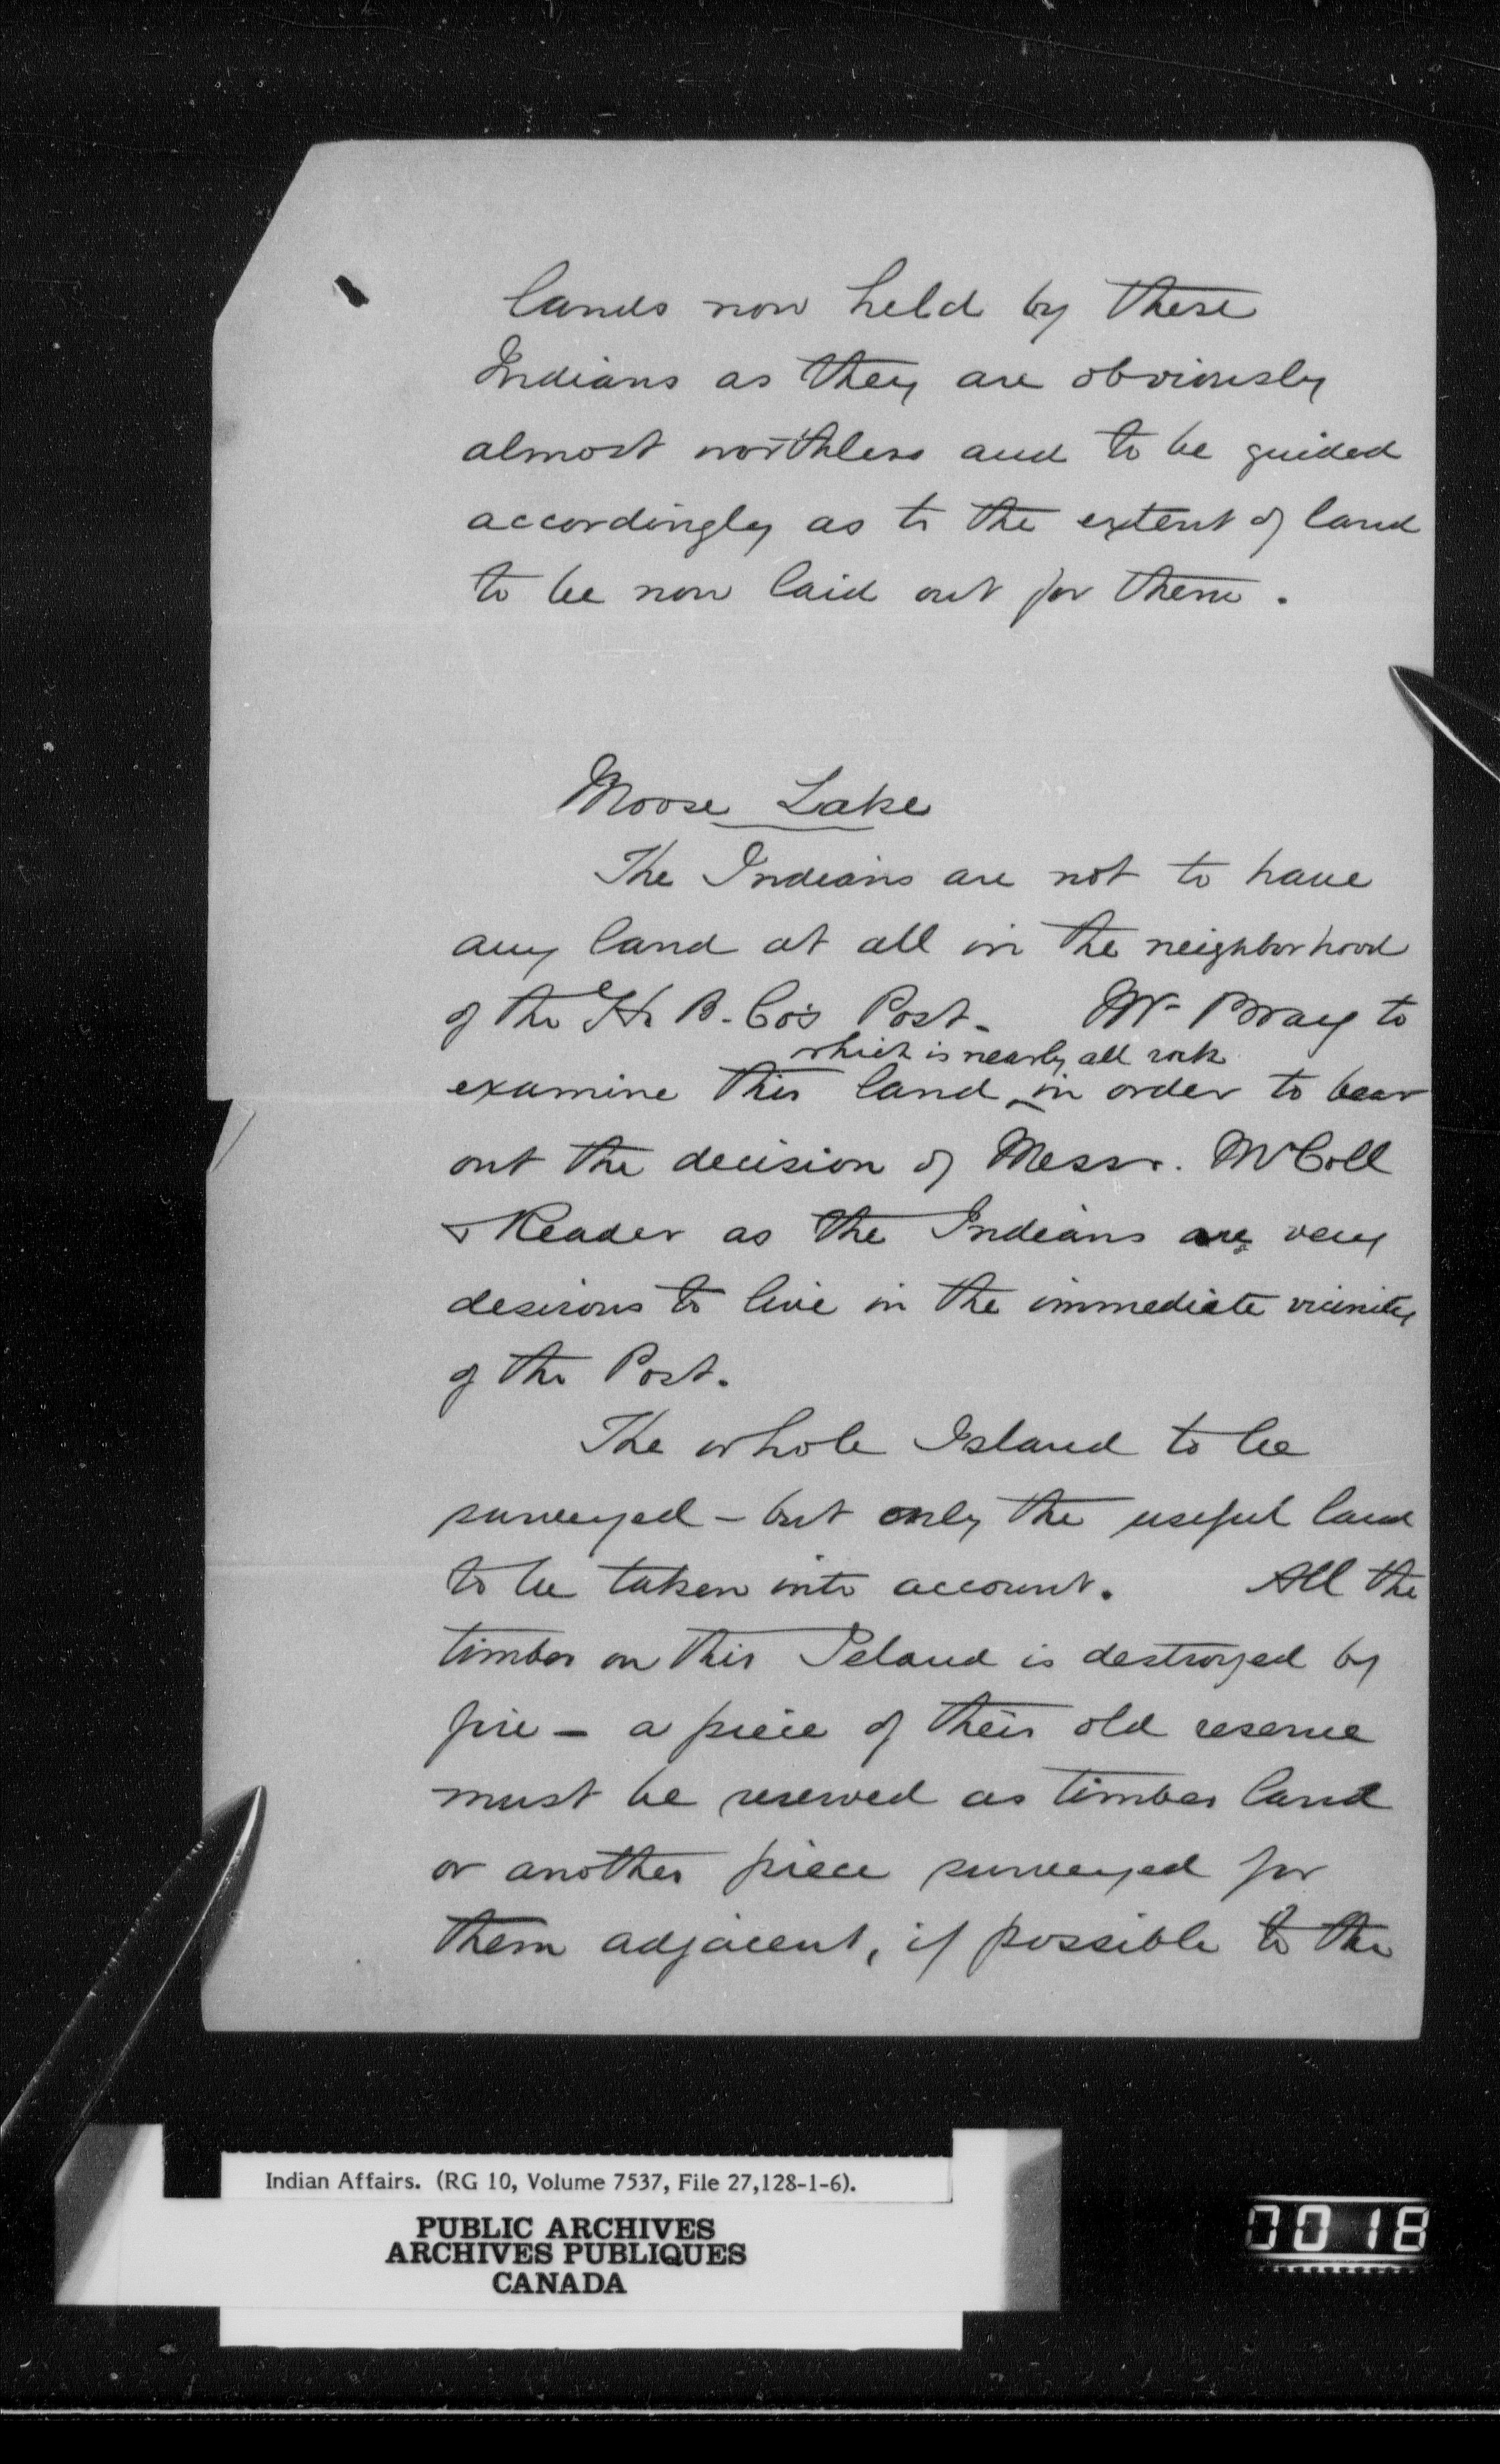 lands now held by these
Indians as they are obviously
almost worthless and to be guided
accordingly as to the extent of land
to be now laid out for them.
Moose Lake
The Indians are not to have
any land at all in the neighborhood
of the H. B. Co's Post. Mr Bray to
which is nearly all rock
examine this land ‸ in order to bear
out the decision of Messr. McColl
& Reader as the Indians are very
desirous to live in the immediate vicinity
of the Post.
The whole Island to be
surveyed – but only the useful land
to be taken into account. All the
timber on this Island is destroyed by
fire – a piece of their old reserve
must be reserved as timber land
or another piece surveyed for
them adjacent, if possible to the
Indian Affairs. (RG 10, Volume 7537, File 27,128-1-6).
PUBLIC ARCHIVES
ARCHIVES PUBLIQUES
CANADA
0018